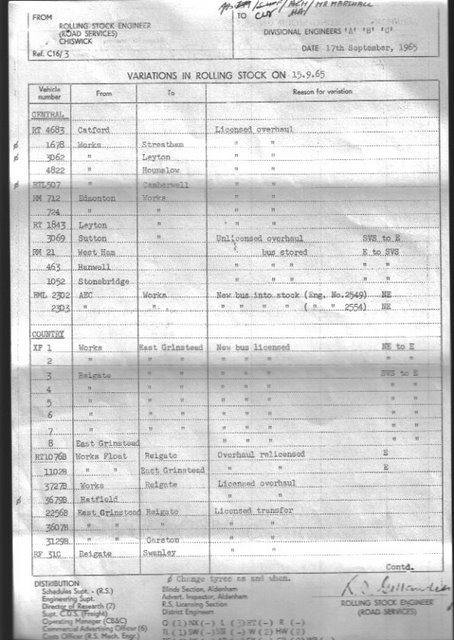 FROM
ROLLING STOCK ENGINEER
(ROAD SERVICES)
CHISWICK
Ref. C16/3
TO
MR MARSHALL
DIVISIONAL ENGINEERS 'A' 'B' 'C'
DATE 17th September, 1965
VARIATIONS IN ROLLING STOCK ON 15.9.65
Vehicle number From To Reason for variation
CENTRAL
RT 4683 Catford Licensed overhaul
ø 1678 Works Streatham " "
ø 3062 " Leyton " "
4822 " Hounslow " "
ø RTL507 " Camberwell " "
RM 712 Edmonton Works " "
724 " " " "
RT 1843 Leyton " " "
3069 Sutton " Unlicensed overhaul SVS to E
RM 21 West Ham bus stored E to SVS
463 Hanwell " " " "
1052 Stonebridge " " " "
RML 2302 AEC Works New bus into stock (Eng. No.2549) NE
2303 " " " " " " ( " " 2554) NE
COUNTRY
XF 1 Works East Grinstead New bus licensed NE to E
2 " " " " " "
3 Reigate " " " SVS to E
4 " " " " " "
5 " " " " " "
6 " " " " " "
7 " " " " " "
8 East Grinstead " " " "
RT1076B Works Float Reigate Overhaul relicensed E
1102B " " East Grinstead " " E
3727B Works Reigate Licensed overhaul
ø 3679B Hatfield " "
2256B East Grinstead Reigate Licensed transfer
3607B " " " " "
3129B " " Garston " "
RF 310 Reigate Swanley " "
Contd.
ø Change tyres as and when.
DISTRIBUTION
Schedules Supt - (R.S.)
Engineering Supt.
Director of Research (2)
Supt. C.D.S. (Freight)
Operating Manager (CB&C)
Commercial Advertising Officer (6)
Costs Officer (R.S. Mech. Engr.)
Blinds Section, Aldenham
Advert. Inspector, Aldenham
R.S. Licensing Section
District Engineers
ROLLING STOCK ENGINEER
(ROAD SERVICES)